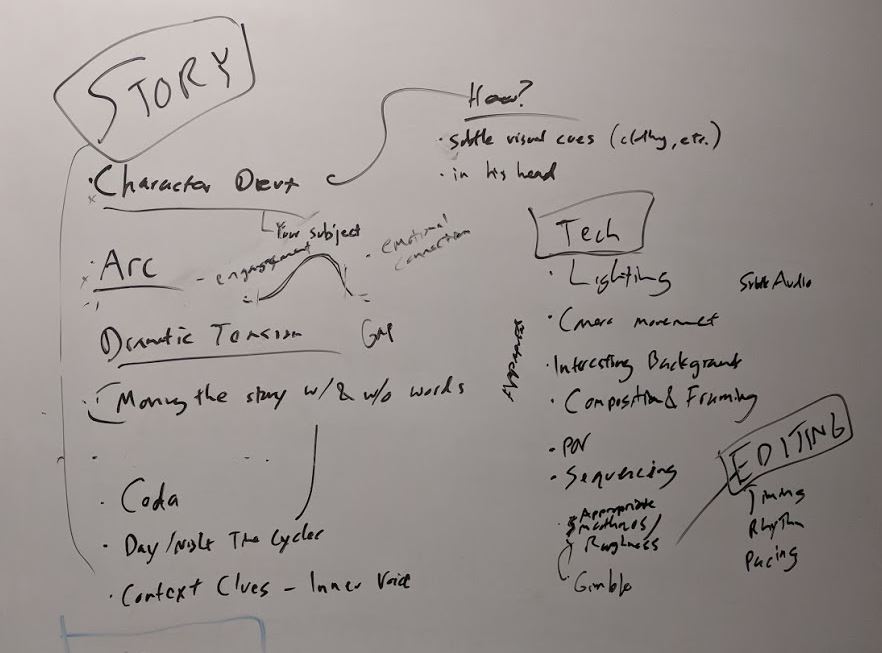 STORY
How?
· subtle visual cues (clothing, etc.)
· in his head
· Character Devt
Your subject
· Arc
- engagement
· emotional connection
Dramatic Tension
Gap
· Moving the story w/ & w/o words
· Coda
· Day/Night The Cycles
· Context Clues - Inner Voice
Tech
Lighting
Subtle Audio
· Camera movement
· Interesting Backgrounds
· Composition & Framing
· POV
· Sequencing
Appropriate
Smoothness/
Roughness
Gimble
EDITING
Timing
Rhythm
Pacing